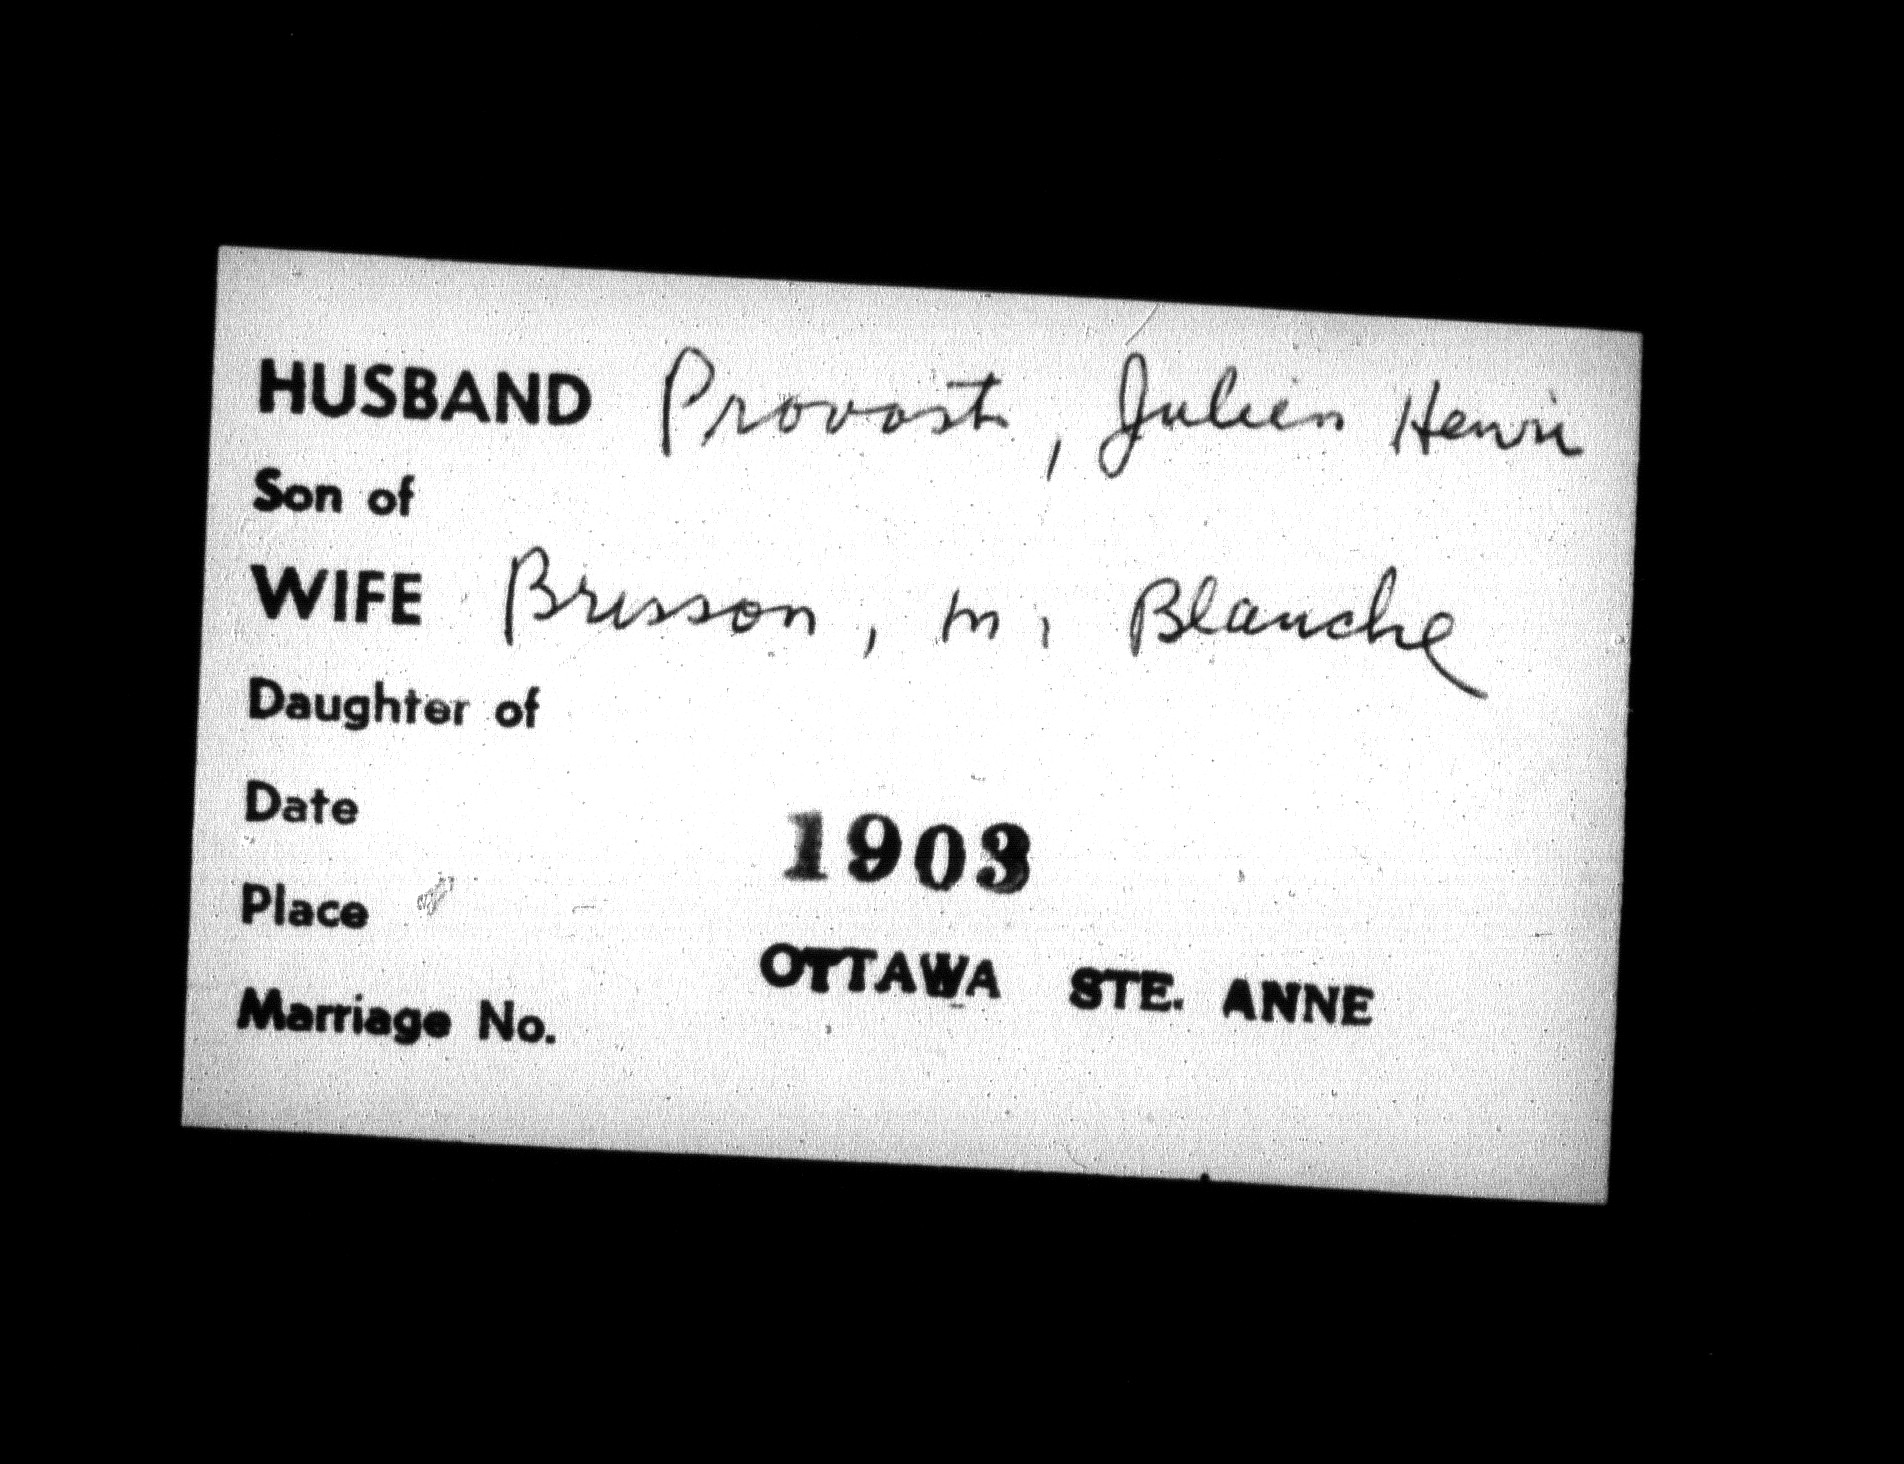 HUSBAND Provost, Julien Henri
Son of
WIFE Brisson, M. Blanche
Daughter of
Date 1903
Place OTTAWA STE. ANNE
Marriage No.